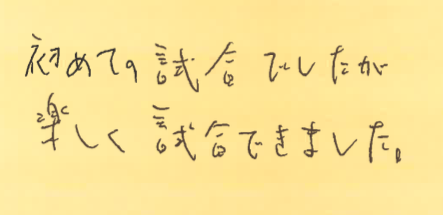 初めての試合でしたが
楽しく試合できました。